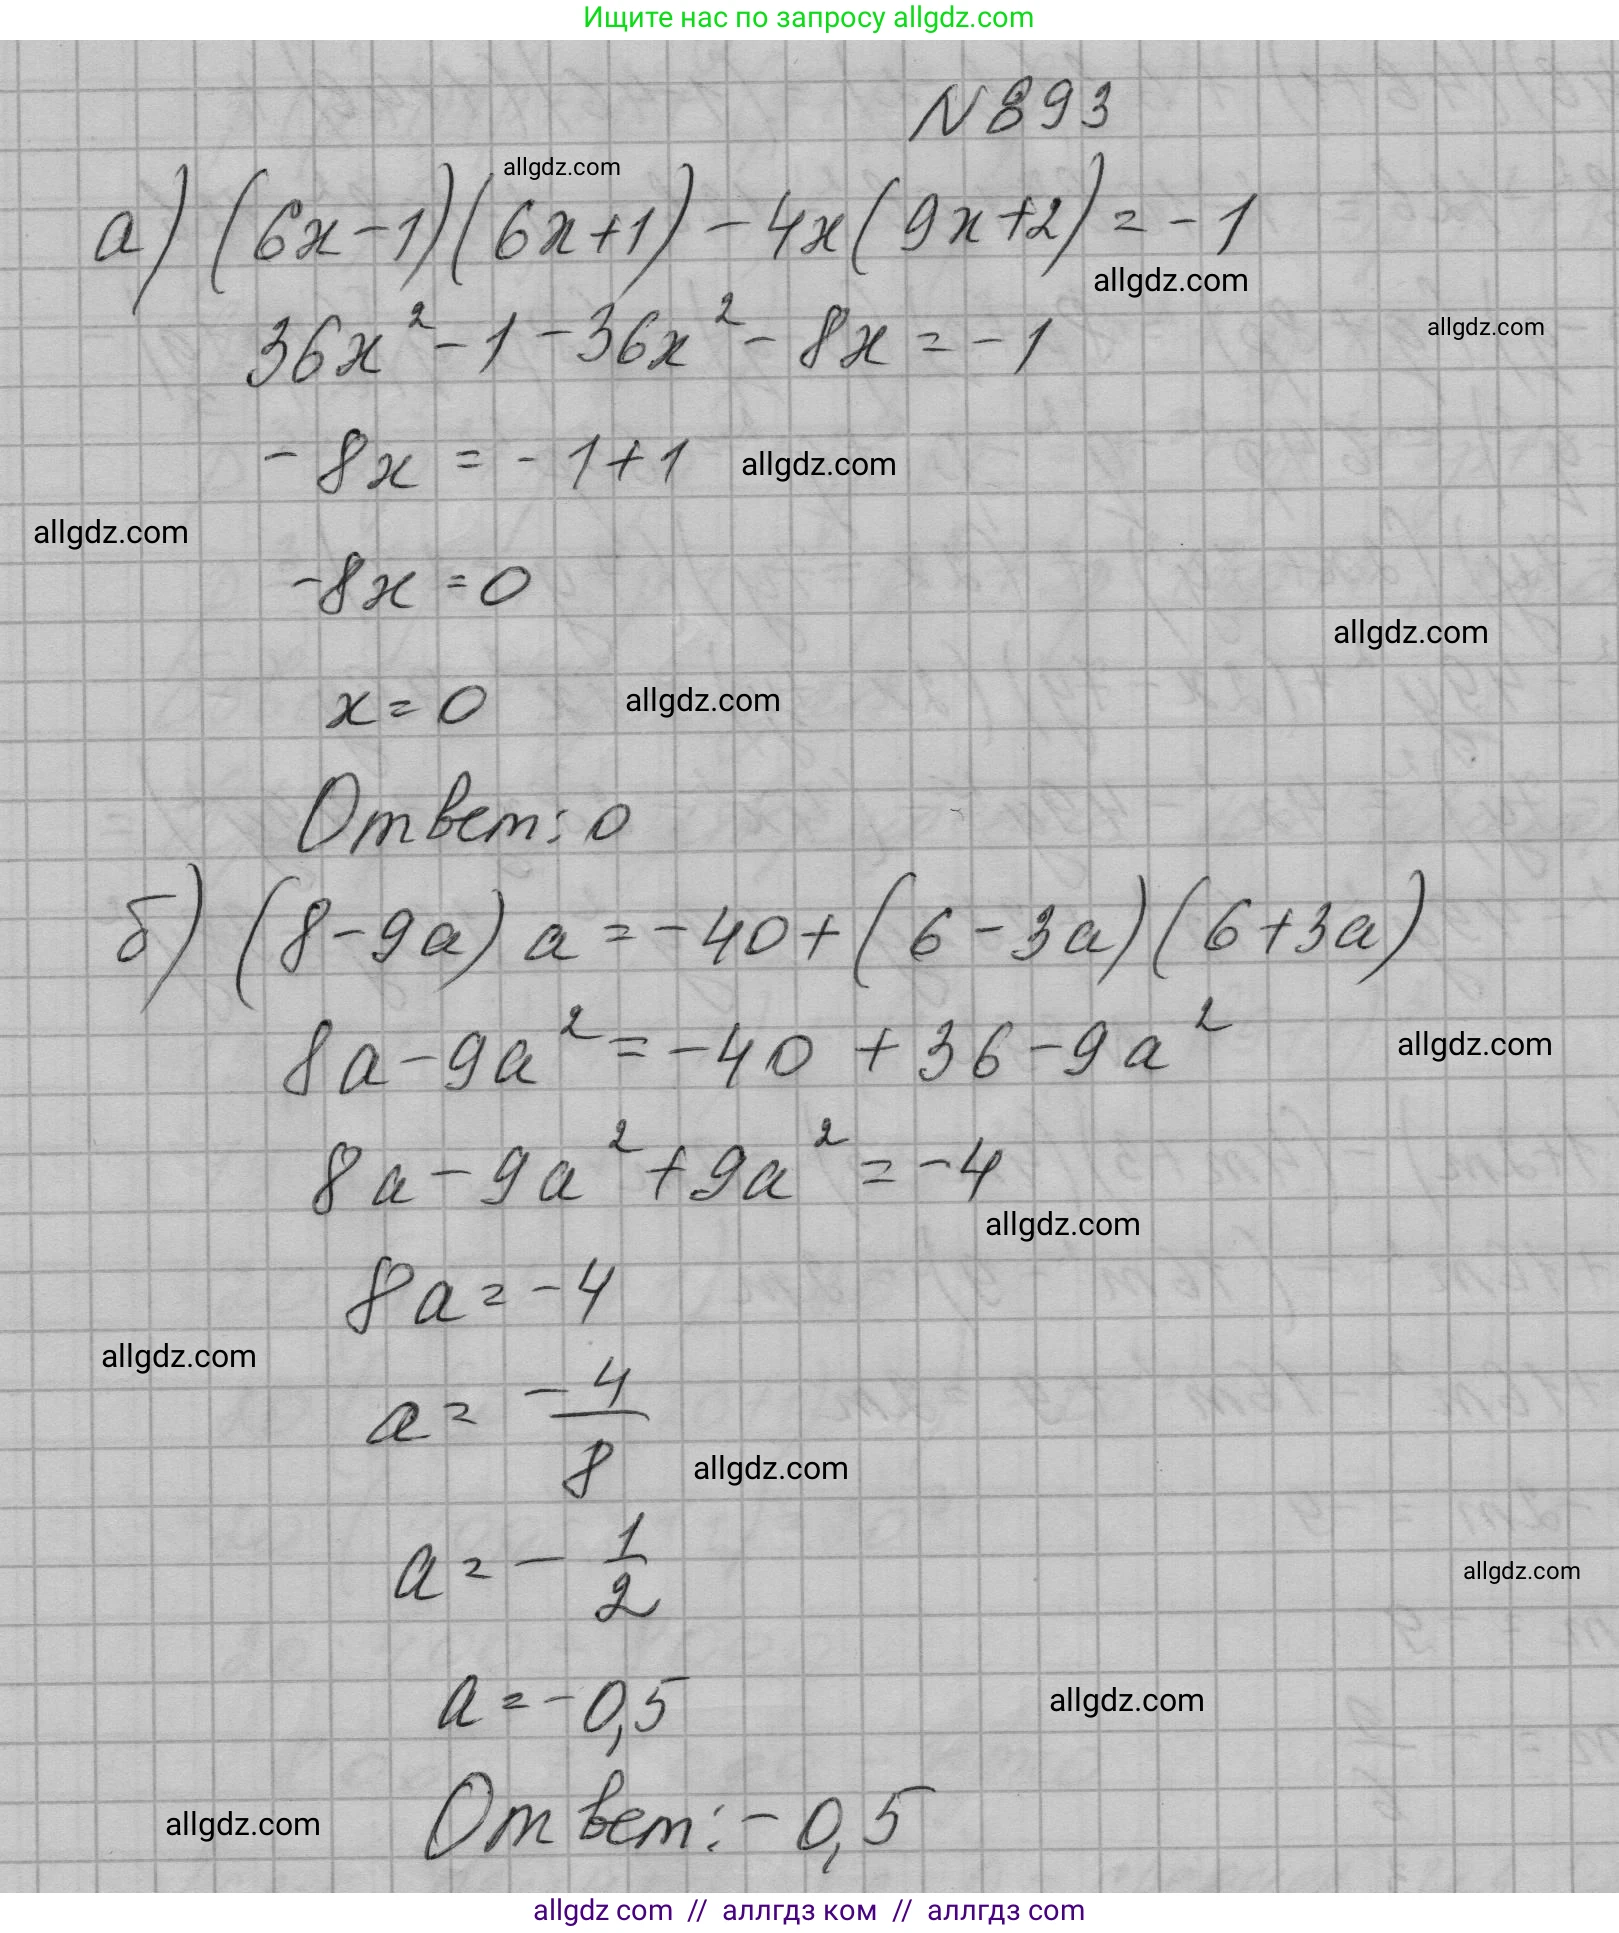 Ищите нас по запросу allgdz.com
N 893
allgdz.com
а) (6x-1)(6x+1)-4x(9x+2)=-1
allgdz.com
36x²-1-36x²-8x=-1
allgdz.com
-8x=-1+1
allgdz.com
allgdz.com
-8x=0
allgdz.com
x=0
allgdz.com
Ответ: 0
б) (8-9a)a=-40+(6-3a)(6+3a)
8a-9a²=-40+36-9a²
allgdz.com
8a-9a²+9a²=-4
allgdz.com
8a=-4
allgdz.com
a=-4/8
allgdz.com
a=-1/2
allgdz.com
a=-0,5
allgdz.com
Ответ: -0,5
allgdz.com
allgdz com // аллгдз ком // аллгдз com